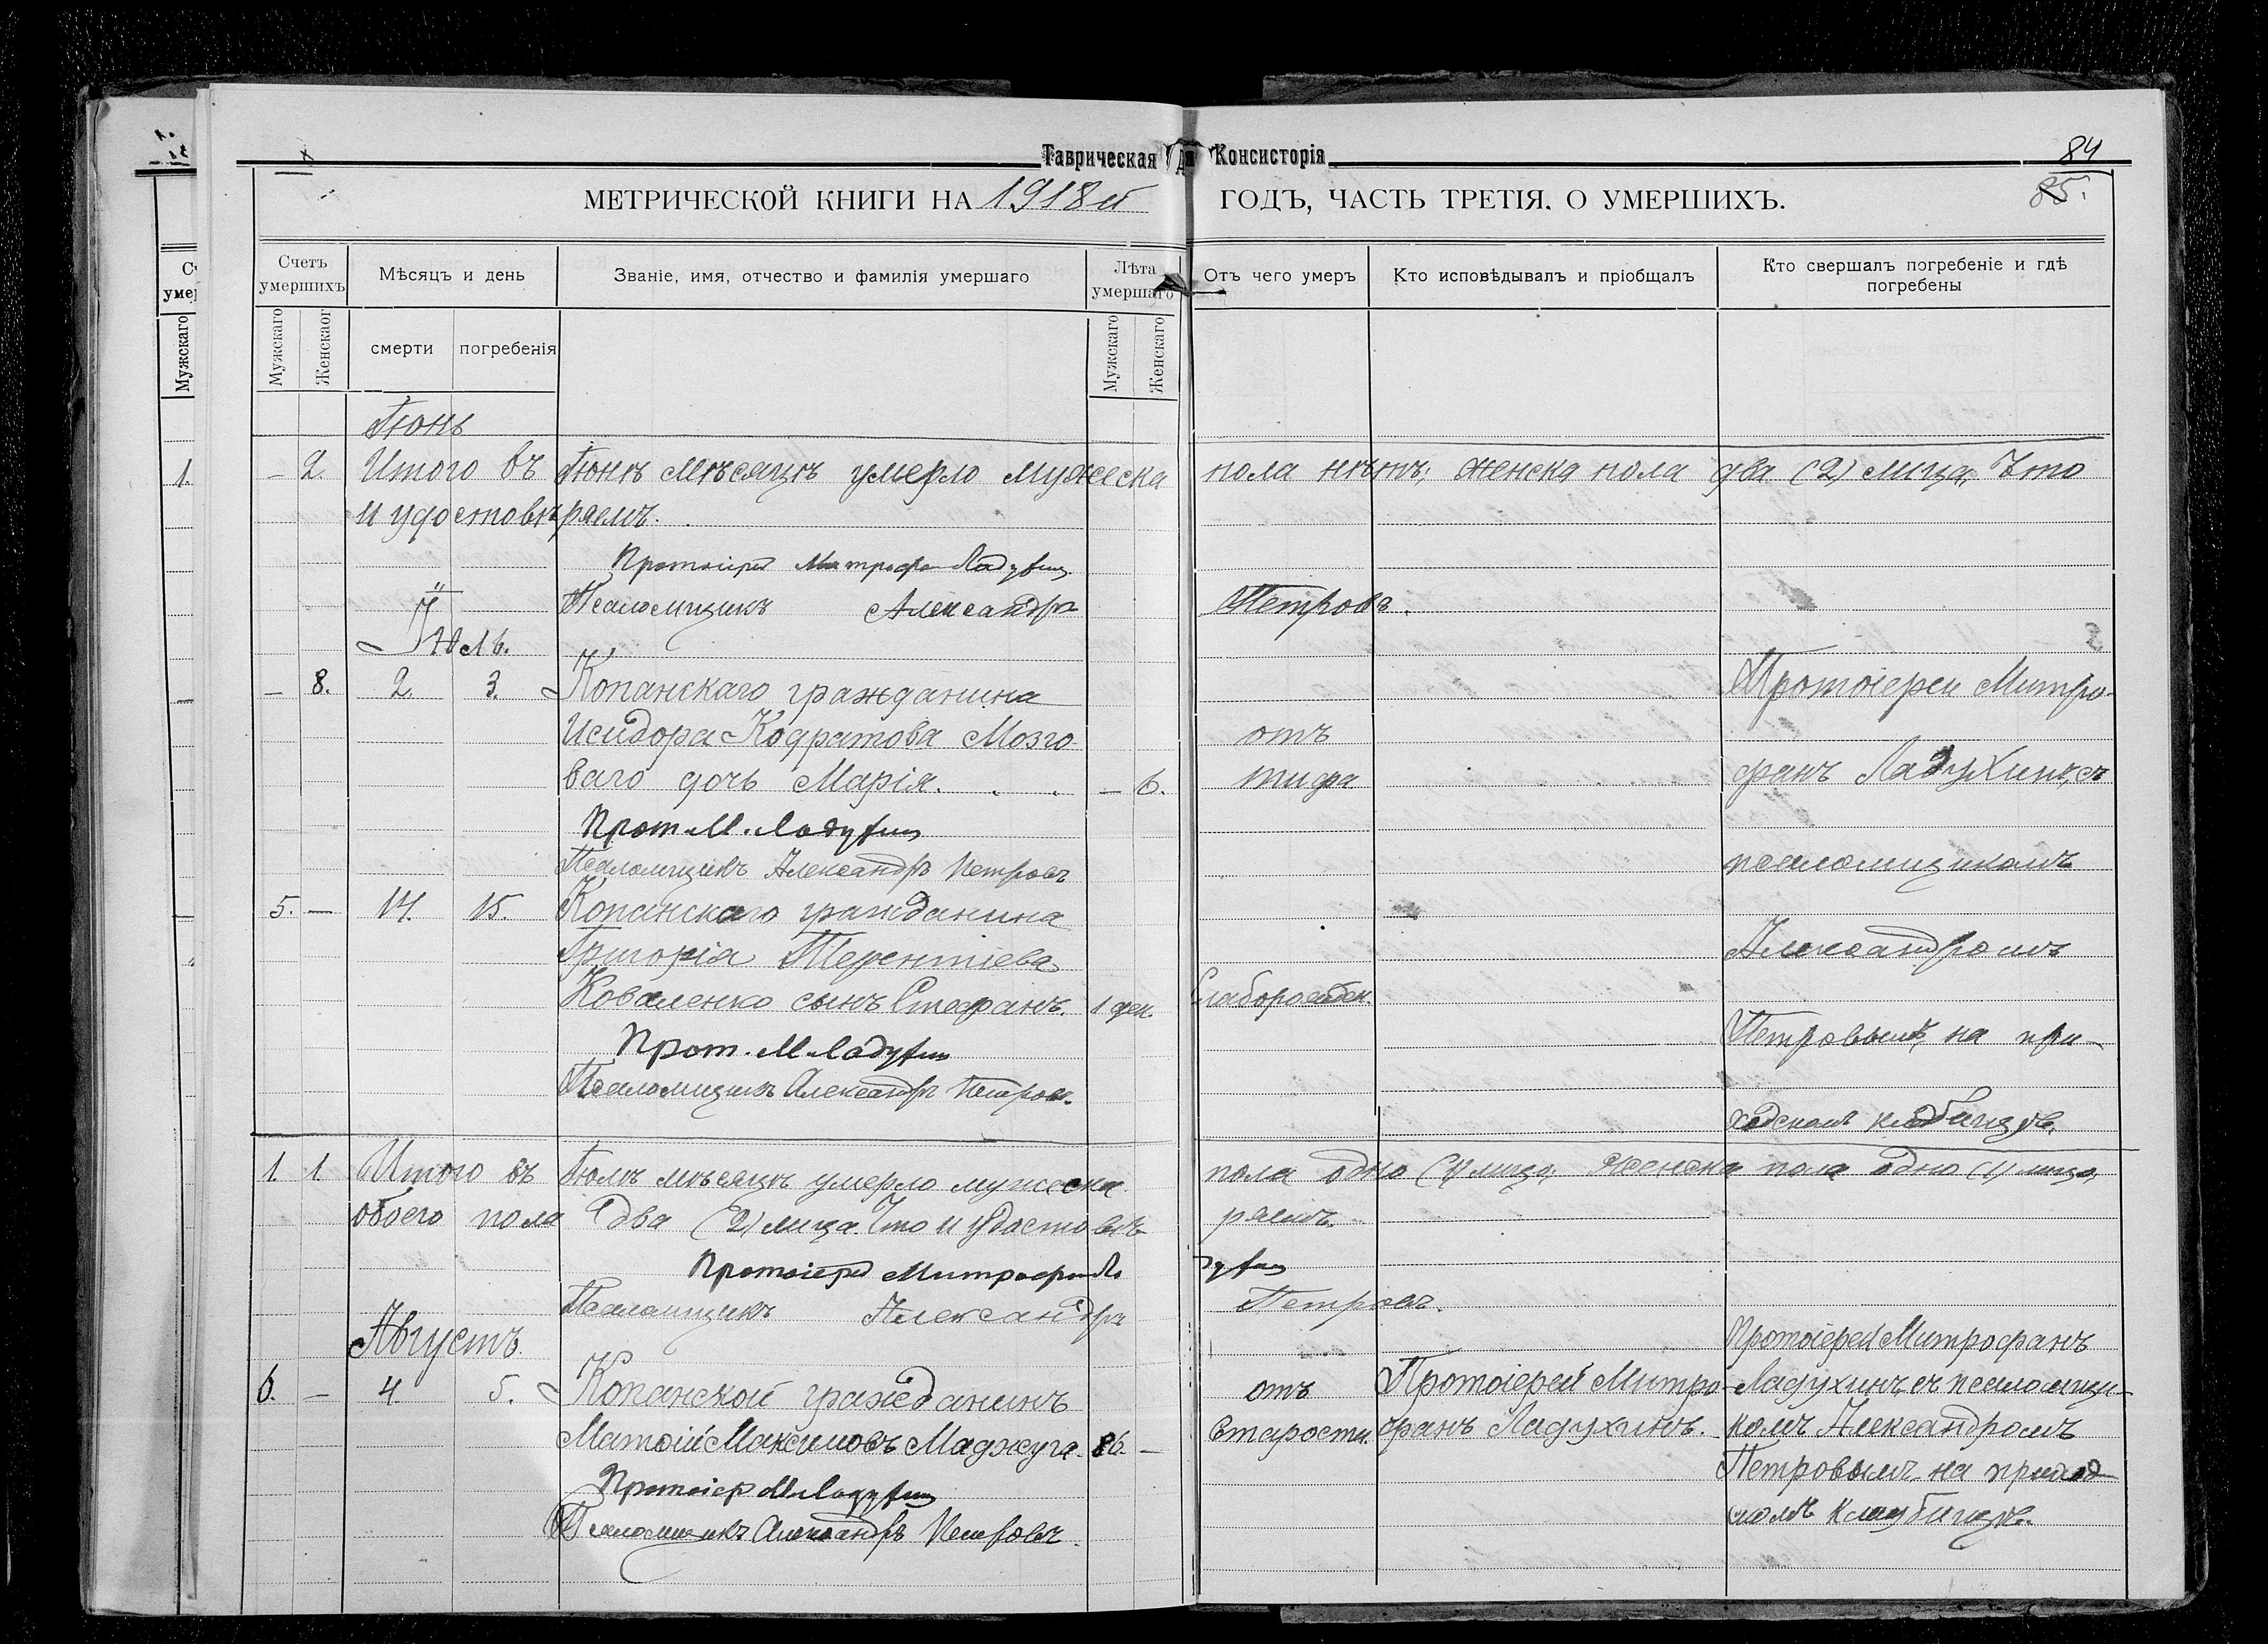 Таврическая Д. Консисторія
84
85.
МЕТРИЧЕСКОЙ КНИГИ НА 1918й ГОДЪ, ЧАСТЬ ТРЕТІЯ. О УМЕРШИХЪ.
Счетъ умершихъ
Мѣсяцъ и день
Званіе, имя, отчество и фамилія умершаго
Лѣта умершаго
Отъ чего умеръ
Кто исповѣдывалъ и пріобщалъ
Кто свершалъ погребеніе и гдѣ погребены
Мужскаго
Женскаог
смерти
погребенія
Мужскаго
Женскаго
Іюнь
1.
– 2. Итого въ Іюнѣ мѣсяцѣ умерло мужеска пола нѣтъ; женска пола два (2) лица, Что
и удостовѣряемъ.
Протоіерей Митрофан Ладухин
Псаломщикъ Александръ Петровъ.
Іюль.
– 8. 2. 3. Копанскаго гражданина
Исидора Кодратова Мозго-
ваго дочь Марія. – 6.
отъ
тифа
Прот. М. Ладухин
Псаломщикъ Александръ Петровъ
5. – 14. 15. Копанскаго гражданина
Григорія Терентіева
Коваленко сынъ Стефанъ. 1 ден. Слаборожден.
Прот. М. Ладухин
Псаломщикъ Александръ Петровъ.
Протоіерей Митро-
фанъ Ладухинъ, съ
псаломщикомъ
Александромъ
Петровымъ, на при-
ходскомъ кладбищѣ.
1. 1 Итого въ Іюлѣ мѣсяцѣ умерло мужеска пола одно (1) лицо; Женска пола одно (1) лицо,
обоего пола два (2) лица. Что и удостовѣ-ряемъ.
Протоіерей Митрофан Ладухин
Псаломщикъ Александръ Петровъ.
Августъ.
6. – 4. 5. Копанской гражданинъ
Матѳій Максимовъ Маджуга. 86. –
отъ
Старости.
Протоіерей Митро-
фанъ Ладухинъ.
Протоіерей Митрофанъ
Ладухинъ съ псаломщи-
комъ Александромъ
Петровымъ на приход-
скомъ кладбищѣ.
Протоіер М. Ладухин
Псаломщикъ Александръ Петровъ.